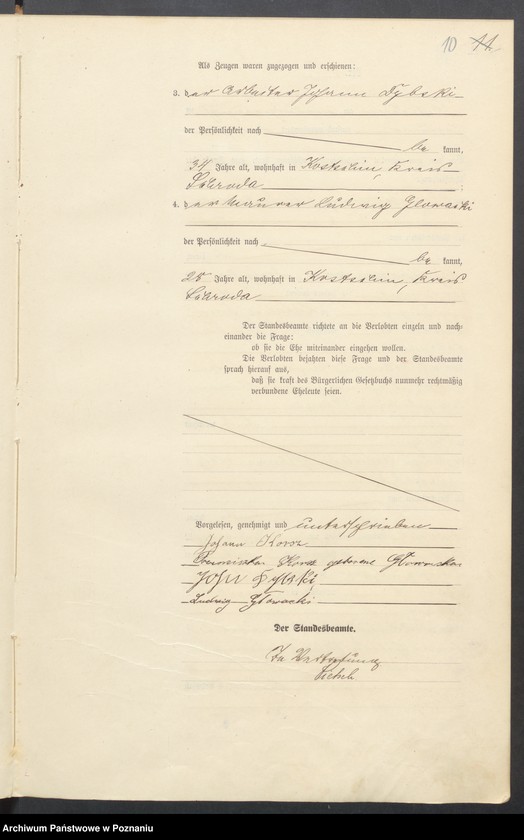 10 11
Als Zeugen waren zugezogen und erschienen:
3. der Arbeiter Johann Dybski
der Persönlichkeit nach
be kannt,
34 Jahre alt, wohnhaft in Kostschin, Kreis
Schroda ;
4. der Maurer Ludwig Glowacki
der Persönlichkeit nach
be kannt,
25 Jahre alt, wohnhaft in Kostschin, Kreis
Schroda
Der Standesbeamte richtete an die Verlobten einzeln und nach-
einander die Frage:
ob sie die Ehe miteinander eingehen wollen.
Die Verlobten bejahten diese Frage und der Standesbeamte
sprach hierauf aus,
daß sie kraft des Bürgerlichen Gesetzbuchs nunmehr rechtmäßig
verbundene Eheleute seien.
Vorgelesen, genehmigt und unterschrieben
Johann
geborene
Ludwig Głowacki
Der Standesbeamte.
In Vertretung
Archiwum Państwowe w Poznaniu